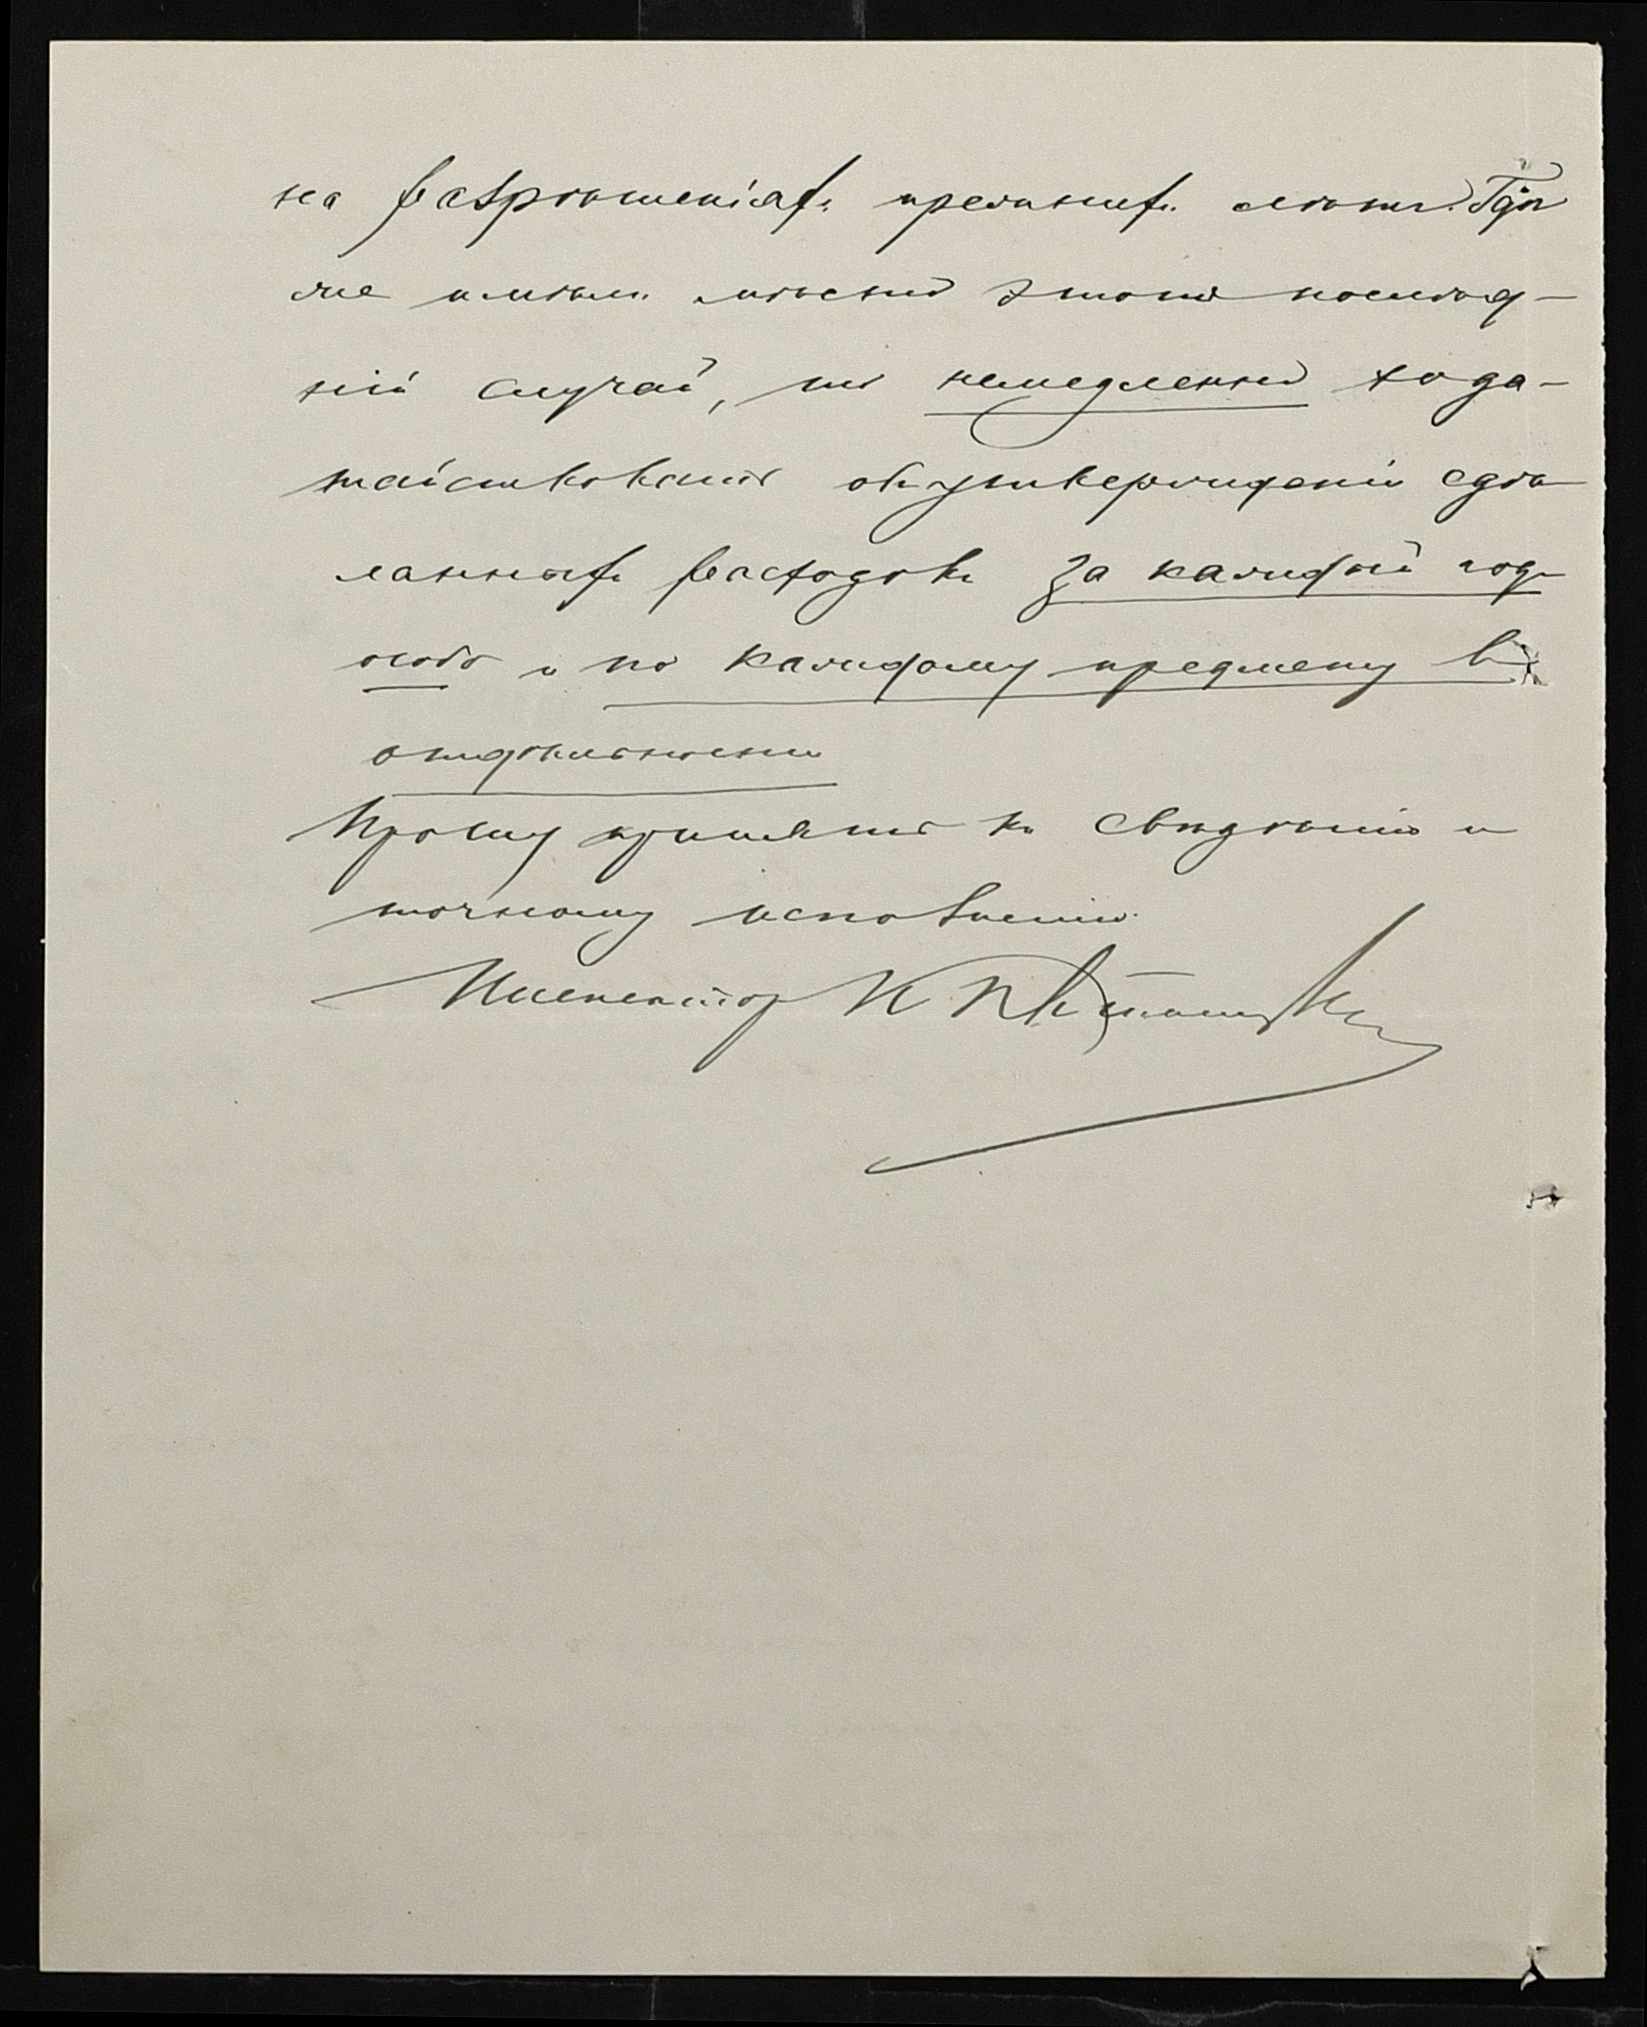 на разрѣшеніяхъ прежнихъ лѣтъ. Гдѣ
же имѣлъ мѣсто этотъ послѣд-
ній случай, то немедленно хода-
тайствовать объ утвержденіи сдѣ-
ланныхъ расходовъ за каждый годъ
особо и по каждому предмету въ
отдѣльности
Прошу принять къ свѣдѣнію и
точному исполненію.
Инспекторъ К